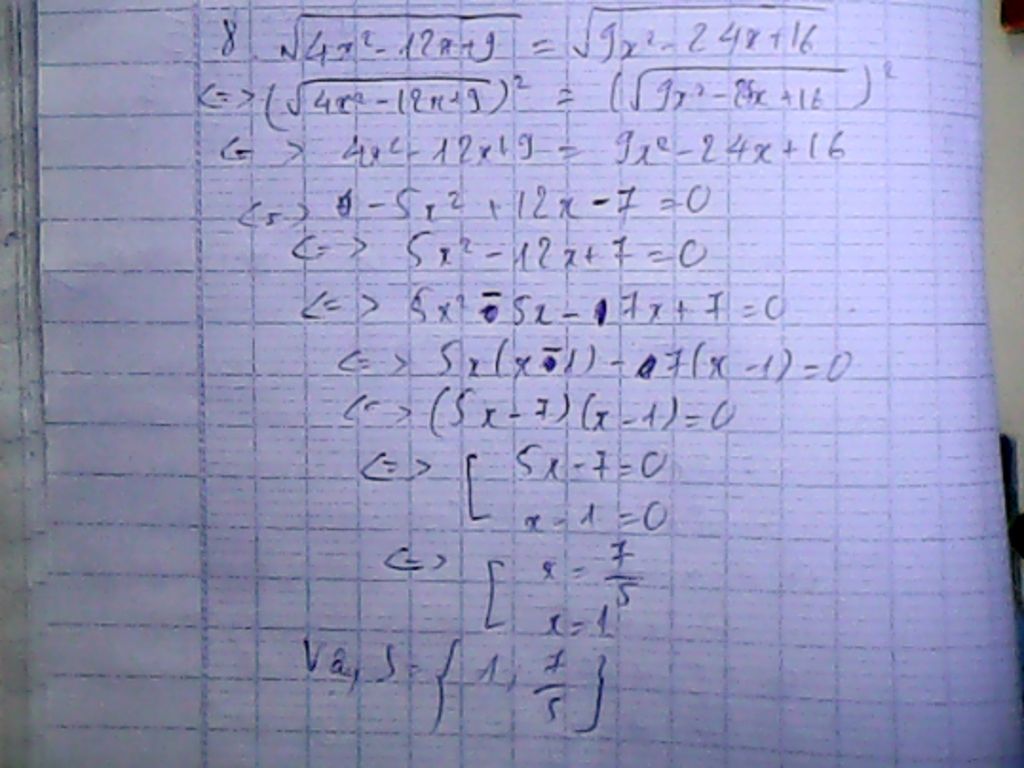 8. √(4x² - 12x + 9) = √(9x² - 24x + 16)
<=> (√(4x² - 12x + 9))² = (√(9x² - 24x + 16))²
<=> 4x² - 12x + 9 = 9x² - 24x + 16
<=> -5x² + 12x - 7 = 0
<=> 5x² - 12x + 7 = 0
<=> 5x² - 5x - 7x + 7 = 0
<=> 5x(x - 1) - 7(x - 1) = 0
<=> (5x - 7)(x - 1) = 0
<=> [ 5x - 7 = 0
x - 1 = 0
<=> [ x = 7/5
x = 1
Vậy S = {1, 7/5}